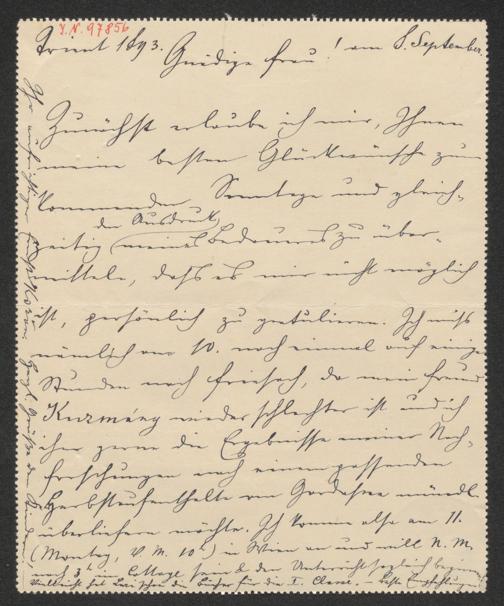 I.N. 97856
Trient 1893. am 8. September.
Gnädige Frau!
Zunächst erlaube ich mir, Ihnen
meine besten Glückwünsche zum
kommenden Sonntage und gleich-
den Ausdruck
zeitig meines Bedauerns zu über-
mitteln, daß es mir nicht möglich
ist, persönlich zu gratulieren. Ich muß
nämlich am 10. noch einmal auf einige
Stunden nach Freisach, da mein Freund
Kuzmány wieder schlechter ist und ich
ihm gerne die Ergebnisse meiner Nach-
forschungen nach einem passenden
Herbstaufenthalte am Gardasee mündl.
überliefern möchte. Ich komme also am 11.
(Montag, V. M. 10h) in Wien an und will N. M.
nach 3h in Cottage sein & den Unterricht sogleich beginnen
Vielleicht hat die Bücher für die I. Classe. – Beste Empfehlungen
Ihr aufrichtiger